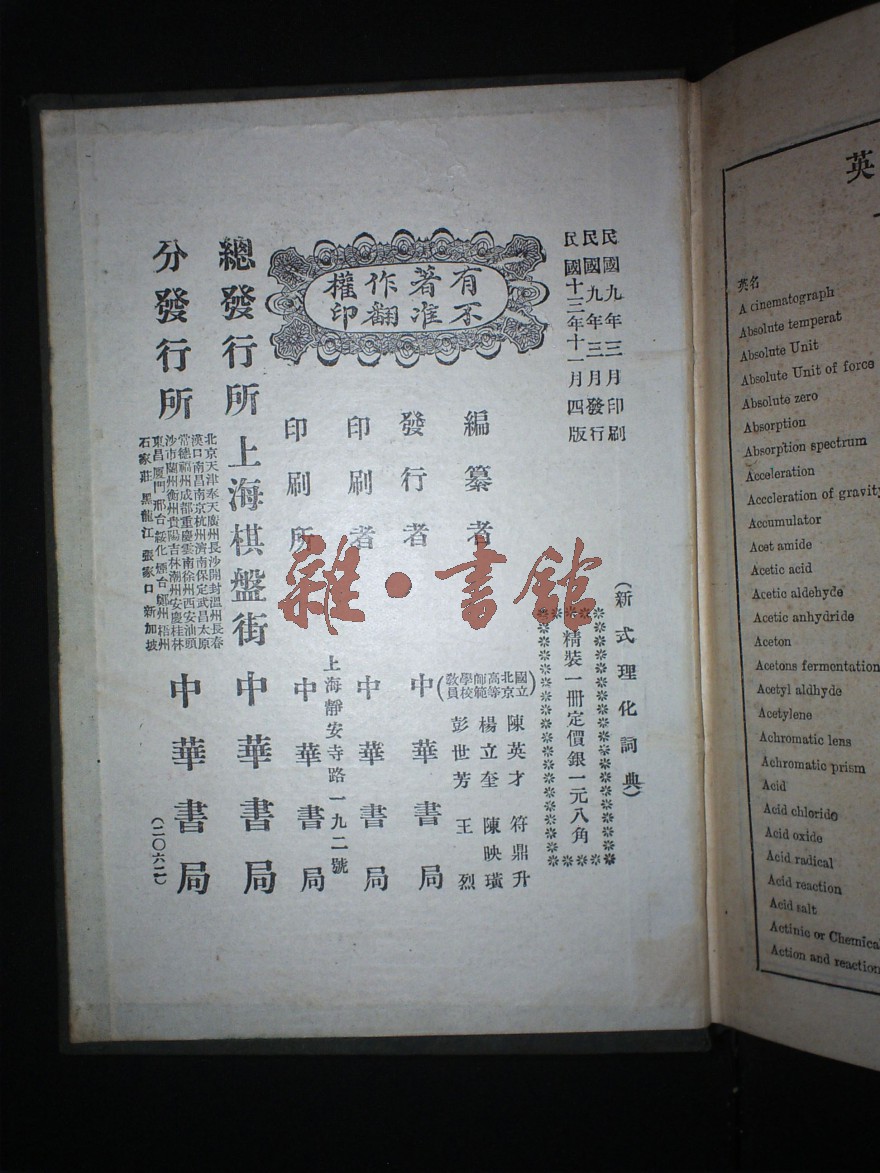 民國九年三月印刷
民國九年三月發行
民國十三年十一月四版
有著作權
不准翻印
(新式理化詞典)
精裝一冊定價銀一元八角
編纂者
國立北京高等師範學校教員
陳英才 符鼎升
楊立奎 陳映璜
彭世芳 王烈
發行者 中華書局
印刷者 中華書局
印刷所 上海靜安寺路一九二號
中華書局
總發行所 上海棋盤街 中華書局
分發行所
北京天津奉天廣州長沙開封溫州長春
漢口南昌南京杭州濟南保定武昌太原
常德福州成都重慶雲南徐州西安汕頭
沙市蘭州衡州貴陽吉林潮州安慶桂林
東昌廈門邢台綏化煙台鄭州梧州
石家莊 黑龍江 張家口 新加坡
中華書局
(二〇六二)
雜·書館
英
英名
A cinematograph
Absolute temperat
Absolute Unit
Absolute Unit of force
Absolute zero
Absorption
Absorption spectrum
Acceleration
Acccleration of gravity
Accumulator
Acet amide
Acetic acid
Acetic aldehyde
Acetic anhydride
Aceton
Acetons fermentation
Acetyl aldhyde
Acetylene
Achromatic lens
Achromatic prism
Acid
Acid chloride
Acid oxide
Acid radical
Acid reaction
Acid salt
Actinic or Chemica
Action and reaction